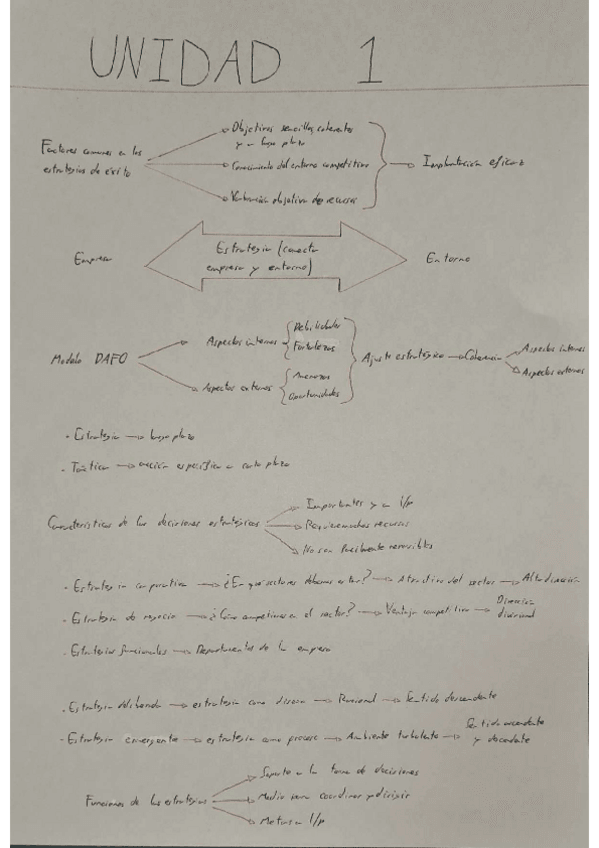 UNIDAD 1
Factores comunes en las
estrategias de éxito
Objetivos sencillos coherentes
y a largo plazo
Conocimiento del entorno competitivo
Valoración objetiva de recursos
Implantación eficaz
Empresa
Estrategia (conecta
empresa y entorno)
Entorno
Modelo DAFO
Aspectos internos
Debilidades
Fortalezas
Aspectos externos
Amenazas
Oportunidades
Ajuste estratégico → Coherencia
Aspectos internos
Aspectos externos
· Estrategia → largo plazo
· Táctica → acción específica a corto plazo
Características de las decisiones estratégicas
Importantes y a l/p
Requiere muchos recursos
No son fácilmente reversibles
· Estrategia corporativa → ¿En qué sectores debemos estar? → Atractivo del sector → Alta dirección
· Estrategia de negocio → ¿Cómo competimos en el sector? → Ventaja competitiva → Dirección
divisional
· Estrategias funcionales → Departamentos de la empresa
· Estrategia deliberada → estrategia como diseño → Racional → Sentido descendente
· Estrategia emergente → estrategia como proceso → Ambiente turbulento → Sentido ascendente
y
Funciones de las estrategias
Soporte a la toma de decisiones
Medio para coordinar y dirigir
Metas a l/p